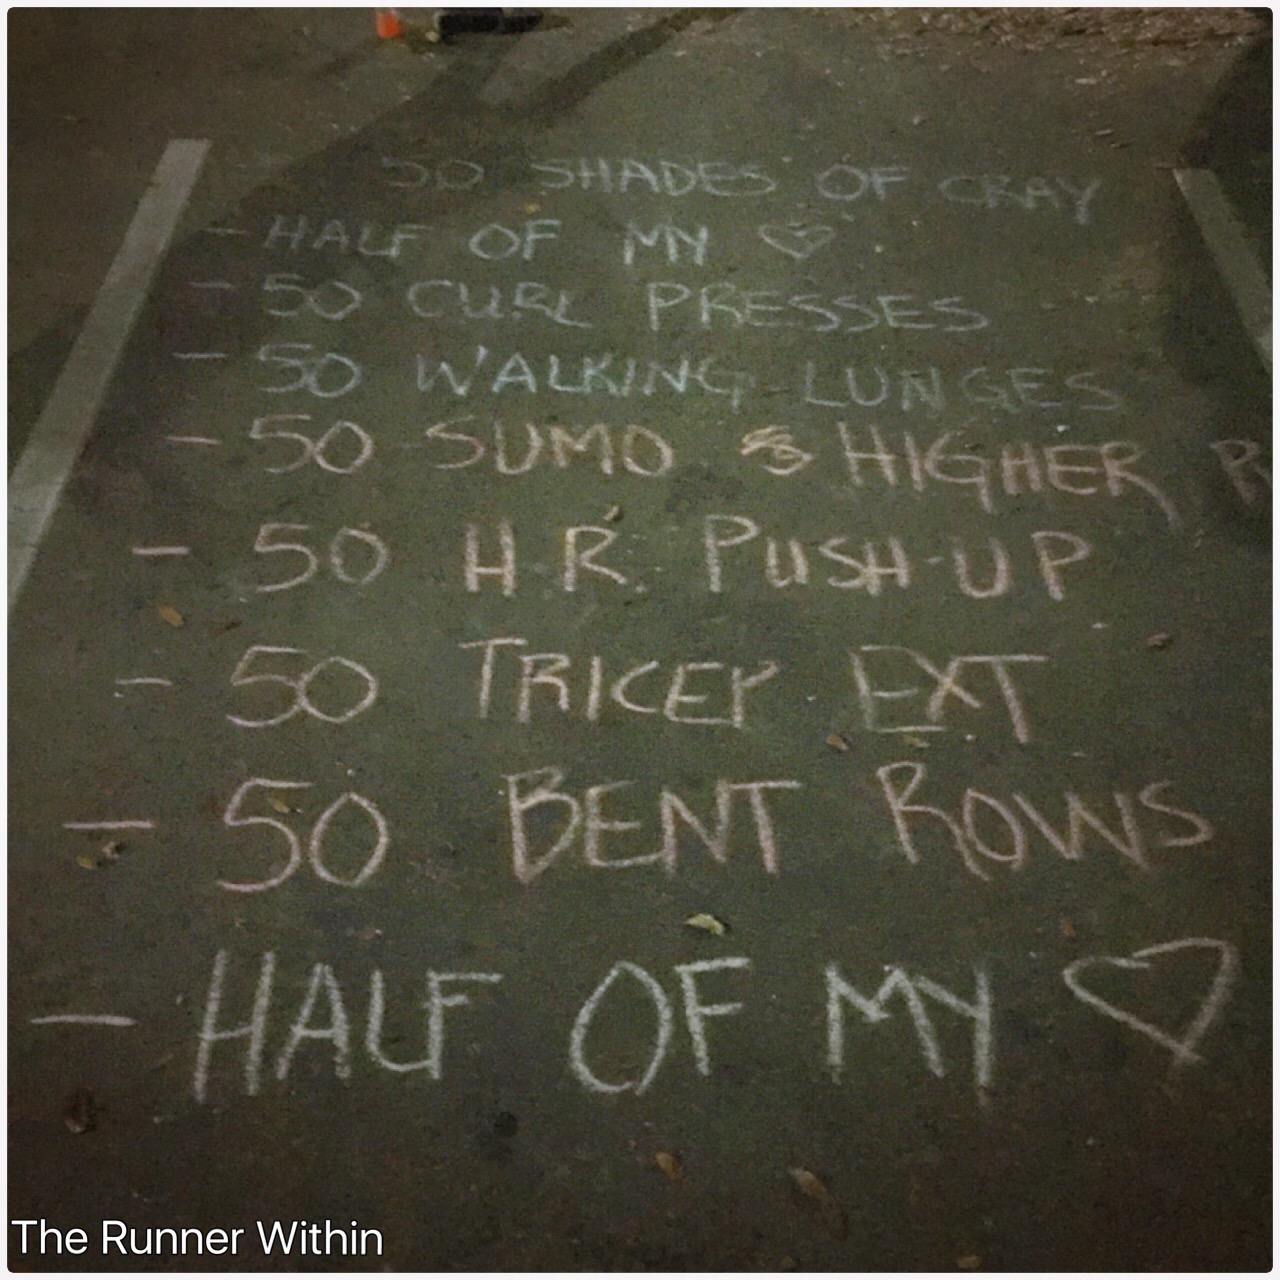 50 SHADES OF CRAY
- HALF OF MY ♡
- 50 CURL PRESSES
- 50 WALKING LUNGES
- 50 SUMO HIGHER
- 50 HR PUSH-UP
- 50 TRICEP EXT
- 50 BENT ROWS
- HALF OF MY ♡
The Runner Within